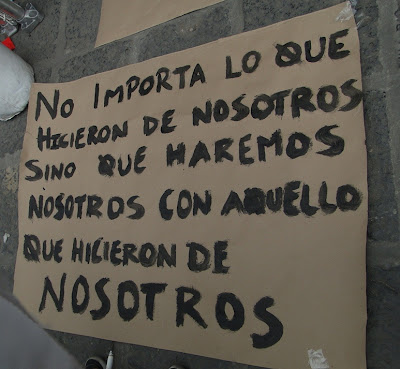 NO IMPORTA LO QUE
HICIERON DE NOSOTROS
SINO QUE HAREMOS
NOSOTROS CON AQUELLO
QUE HICIERON DE
NOSOTROS